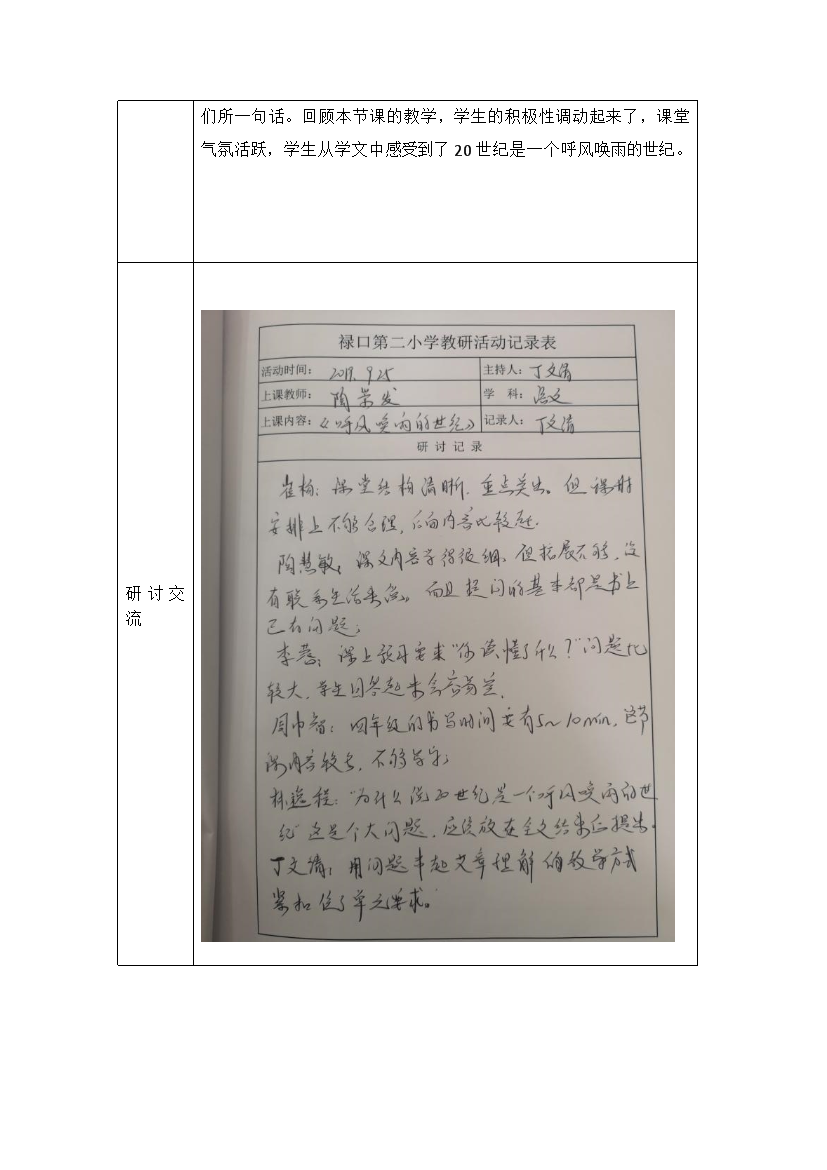 们所一句话。回顾本节课的教学，学生的积极性调动起来了，课堂
气氛活跃，学生从学文中感受到了 20 世纪是一个呼风唤雨的世纪。
研讨交
流
禄口第二小学教研活动记录表
活动时间： 2019. 9. 25 主持人：丁文清
上课教师： 陶荣发 学 科：语文
上课内容：《呼风唤雨的世纪》 记录人：丁文清
研 讨 记 录
崔杨：课堂结构清晰，重点突出。但课时
安排上不够合理，后面内容比较赶.
陶慧敏：课文内容学得很细，但拓展不够，没
有联系生活实际。而且提问的基本都是书上
已有问题；
李慧：课上预习要求“你读懂了什么？”问题比
较大，学生回答起来会容易
周巾智：四年级的书写时间要有5～10min，这节
课内容较长，不够写字；
林逸程：“为什么说20世纪是一个呼风唤雨的世
纪”这是个大问题，应该放在全文结束后提出.
丁文清：用问题串起文章理解的教学方式
紧扣住了单元要求。